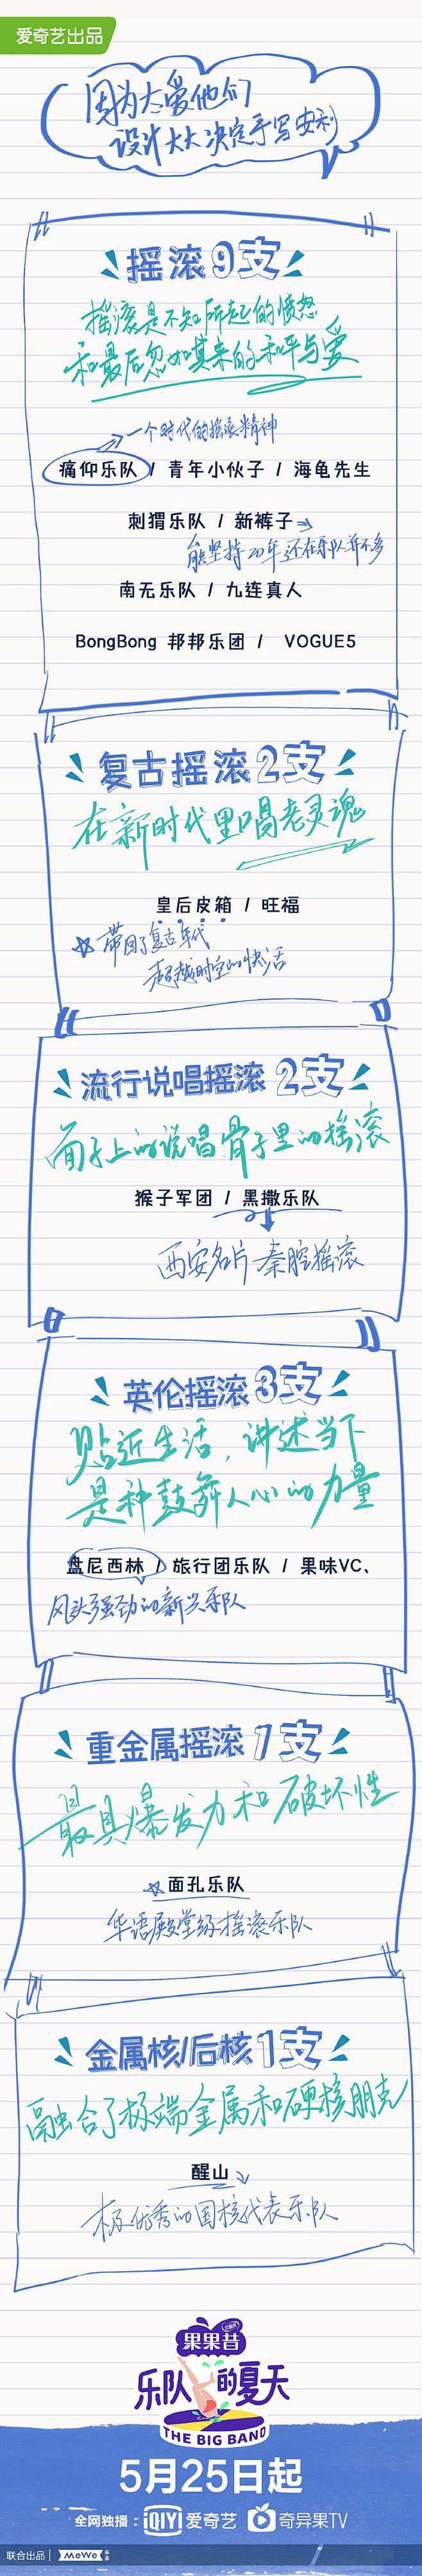 爱奇艺出品
因为太爱他们
设计大大决定手写安利
摇滚9支
摇滚是不知所起的愤怒
和最后忽如其来的和平与爱
一个时代的摇滚精神
痛仰乐队 / 青年小伙子 / 海龟先生
刺猬乐队 / 新裤子
能坚持20年还在乐队并不多
南无乐队 / 九连真人
BongBong 邦邦乐团 / VOGUE5
复古摇滚2支
在新时代里唱老灵魂
皇后皮箱 / 旺福
带回了复古年代
超越时空的快活
流行说唱摇滚2支
面子上的说唱 骨子里的摇滚
猴子军团 / 黑撒乐队
西安名片 秦腔摇滚
英伦摇滚3支
贴近生活，讲述当下
是种鼓舞人心的力量
盘尼西林 / 旅行团乐队 / 果味VC、
风头强劲的新兴乐队
重金属摇滚1支
最具爆发力和破坏性
面孔乐队
华语殿堂级摇滚乐队
金属核/后核1支
融合了极端金属和硬核朋克
醒山
极优秀的国核代表乐队
果果昔
乐队的夏天
THE BIG BAND
5月25日起
全网独播：iQIYI 爱奇艺 奇异果TV
联合出品 MeWe